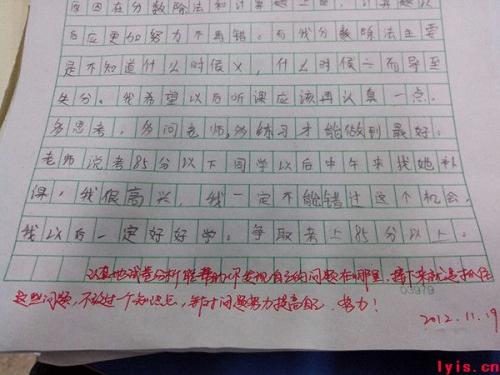 原因在分数除法和计算题上面，计算题以
后应更加努力不再错。而我分数除法主要
是不知道什么时候×，什么时候÷而导至
失分。我希望以后听课应该再认真一点。
多思考，多问老师，多练习才能做到最好。
老师说考85分以下同学以后中午来找她补
课，我很高兴，我一定不能错过这个机会。
我以后一定好好学。争取考上85分以上。
认真地试卷分析能帮助你发现自己的问题在哪里，接下来就是抓住
这些问题，不放过一个知识点，针对问题努力提高自己，努力！
2012.11.19
lyis.cn